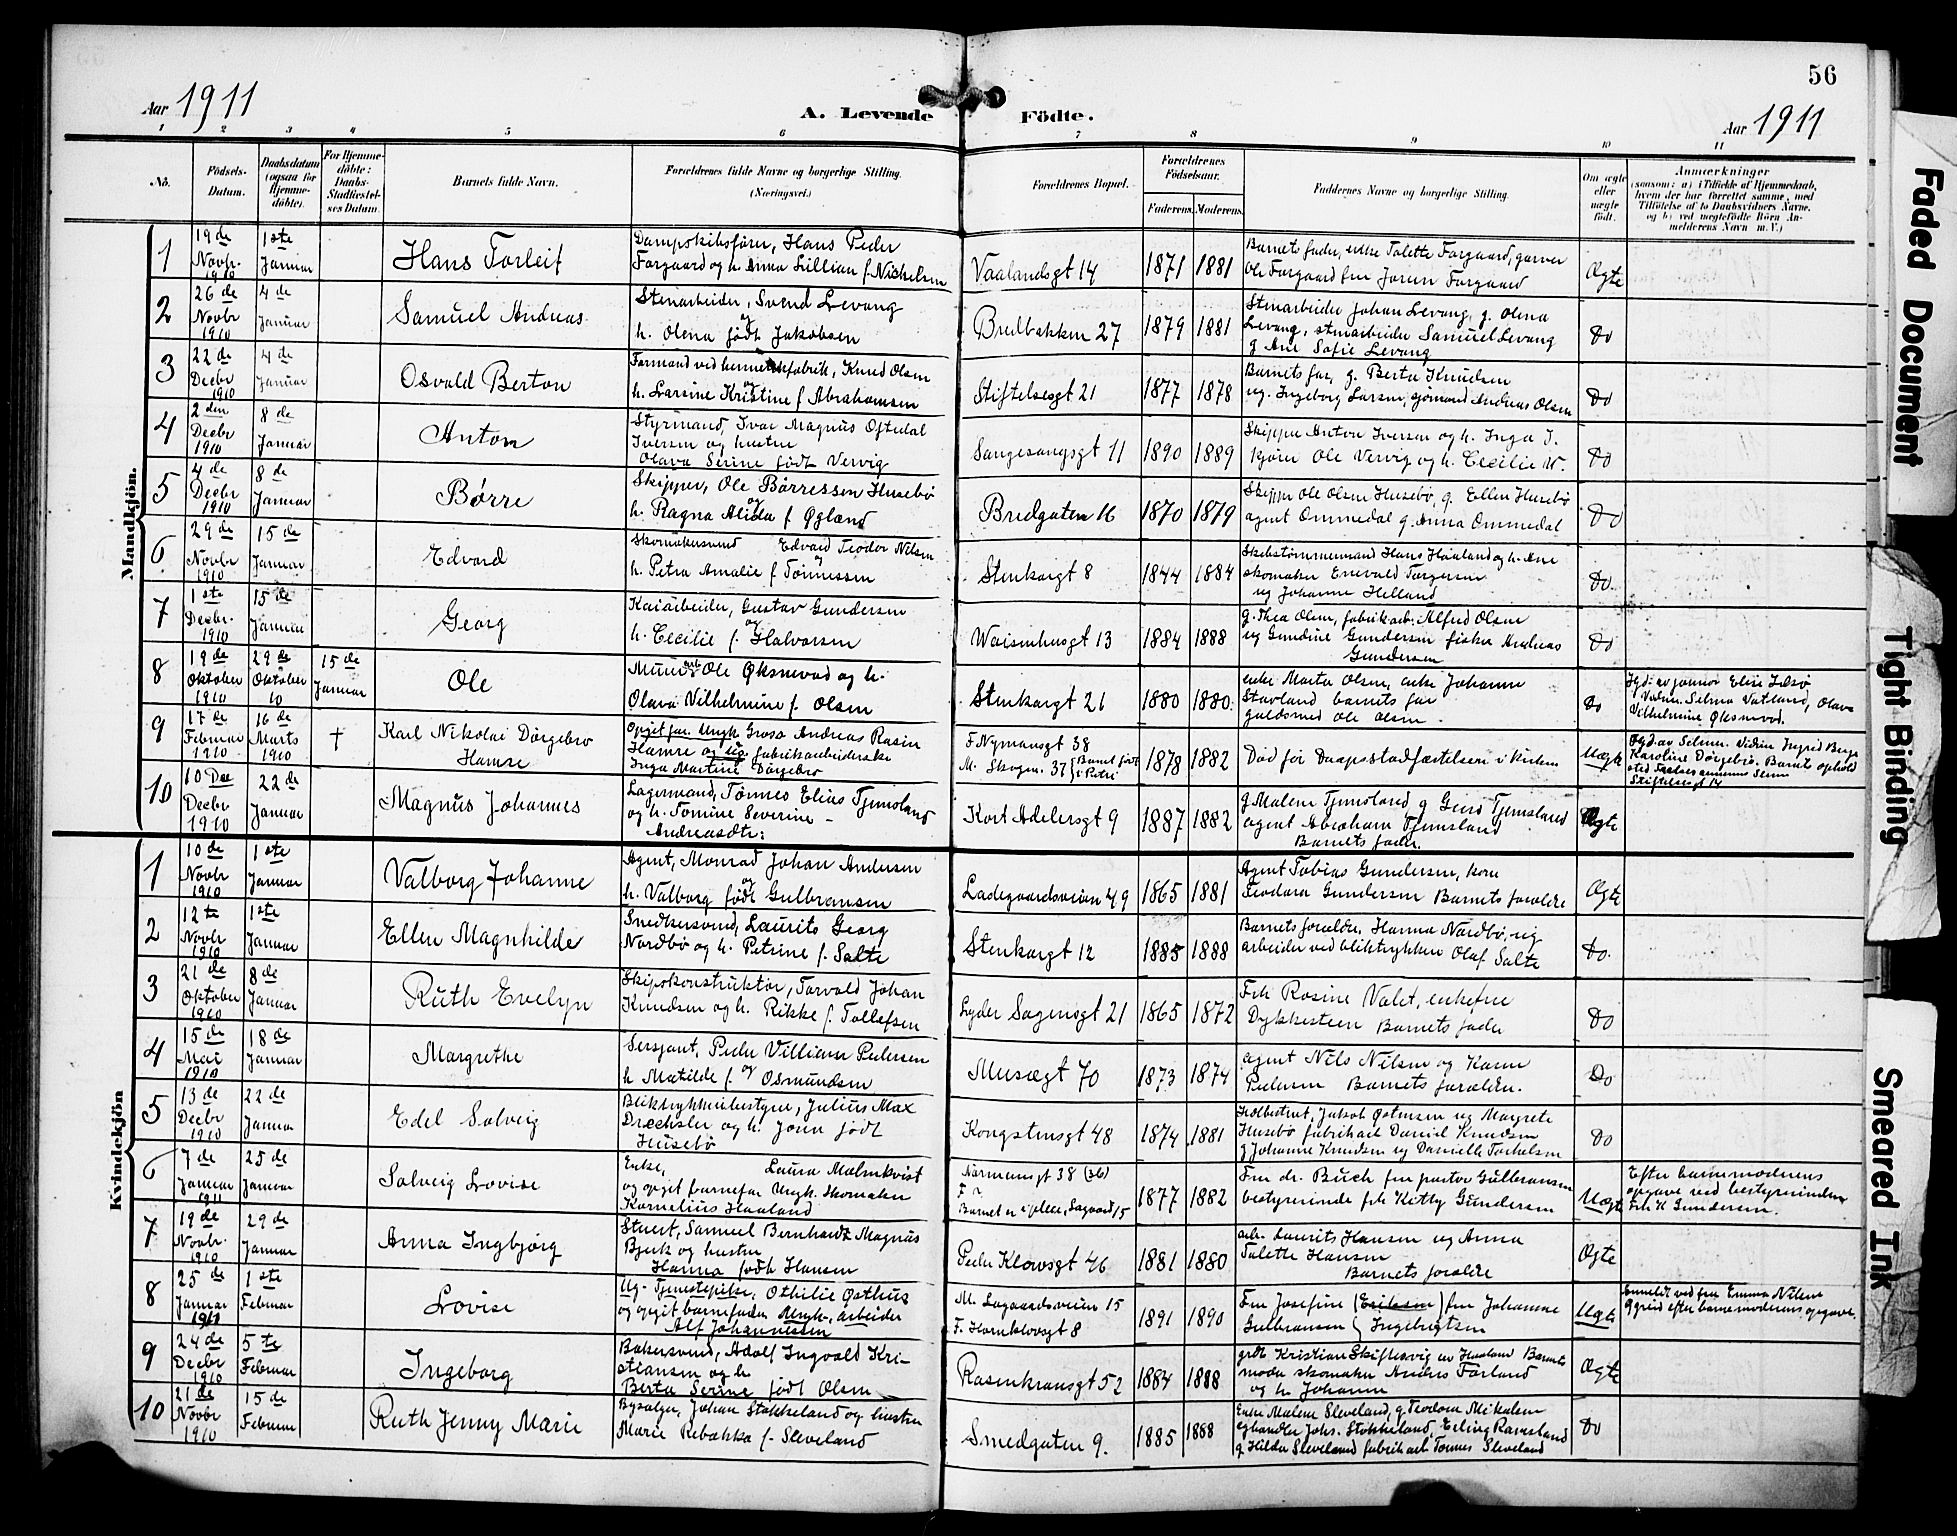 56
Aar 1911
A. Levende Födte.
Aar 1911
1 2 3 4 5 6 7 8 9 10 11
No.
Födsels-Datum.
Daabsdatum (ogsaa for Hjemme-döbte).
For Hjemme-döbte: Daabs-Stadfæstel-ses Datum.
Barnets fulde Navn.
Forældrenes fulde Navne og borgerlige Stilling. (Næringsvei.)
Forældrenes Bopæl.
Forældrenes Födselsaar.
Faderens. Moderens.
Faddernes Navne og borgerlige Stilling.
Om ægte eller uægte födt.
Anmærkninger
(saasom: a) i Tilfælde af Hjemmedaab, hvem der har forrettet samme, med Tilföielse af to Daabsvidners Navne, og b) ved uægtefödte Börn An-melderens Navn m. V.)
Mandkjön.
1 19de Novbr. 1910 1ste Januar Hans Torleif
Dampskibsfører, Hans Peder
Torgaard og h. Anna Lillian f. Nichelsen
Vaalandsgt 14 1871 1881
Barnets fader, enke Talette Torgaard, garver
Ole Torgaard fru Jorun Torgaard
Ægte
2 26de Novbr 1910 4de Januar Samuel Andreas
Stenarbeider, Svend Levang
og
h. Olena født Jakobsen
Bredbakken 27 1879 1881
Stenarbeider Johan Levang, g. Olena
Levang, stenarbeider Samuel Levang
g Ane Sofie Levang
Do
3 22de Decbr 1910 4de Januar Osvald Berton
Formand ved hermetikfabrik, Knud Olsen
og
h. Larsine Kristine f Abrahamsen
Stiftelsesgt 21 1877 1878
Barnets far, g. Berta Knudsen
ug. Ingeborg Larsen, sjømand Andreas Olsen
Do
4 2den Decbr 1910 8de Januar Anton
Styrmand, Ivar Magnus Oftedal
Iversen og hustru
Olava Serine født Vervig
Sangesangsgt 11 1890 1889
Skipper Anton Iversen og h. Inga I.
Ole Vervig og h. Cecilie W.
Do
5 4de Decbr 1910 8de Januar Børre
Skipper, Ole Børressen Husebø
og
h. Ragna Alida f. Øgland
Bredgaten 16 1870 1879
Skipper Ole Olsen Husebø, g. Ellen Husebø
agent Ommedal g. Anna Ommedal
Do
6 29de Novbr 1910 15de Januar Edvard
Skomakersvend Edvard Teodor Nilsen
og
h. Petra Amalie f Tønnessen
Stenkargt 8 1844 1884
Skibstømmermand Hans Haaland og h. Ane
skomaker Enevald Torgersen
ug Johanne Helland
Do.
7 1ste Decbr. 1910 15de Januar Georg
Kaiarbeider, Gustav Gundersen
og
h. Cecilie f. Halvorsen
Waisenhusgt 13 1884 1888
g. Thea Olsen, fabrikarb. Alfred Olsen
ug Gundine Gundersen fisker Andreas
Gundersen
Do
8 19de Oktober 1910 29de Oktober 10 15de Januar Ole
Murerarb Ole Øksnevad og h.
Olava Vilhelmine f. Olsen
Stenkargt 21 1880 1880.
enke Marta Olsen, enke Johanne
Stavland barnets far
guldsmed Ole Olsen.
Do
Hjd. av jormor Elise
Vidner Selma Vatland, Olava
Vilhelmine Øksnevad.
9 17de Februar 1910 16de Marts 1910 † Karl Nikolai Dørgebro Hamre
Opgit far. Ungk Gross Andreas Rasin
Hamre og ug. fabrikarbeiderske
Inga Martine Dørgebro
F. Nymansgt 38
M. Skogen. 37 {Barnet født i Petri
1878 1882
Død før Daapsstadfæstelsen i kirken
Uægte
Hjd. av Selma. Vidner Ingrid Berge
Karoline Dørgebro. Barnet ophold
10 10de Decbr 1910 22de Januar Magnus Johannes
Lagermand, Tønnes Elias Tjemsland
og h. Tomine Severine –
Andreasdtr.
Kort Adelersgt 9 1887 1882
g Malene Tjemsland g Gurd Tjemsland
agent Abraham Tjemsland
Barnets fader.
Ægte
Kvindekjön
1 10de Novbr 1910 1ste Januar Valborg Johanne
Agent, Monrad Johan Andersen
og
h. Valborg født Gulbransen
Ladegaardsveien 49 1865 1881
Agent Tobias Gundersen, kone
Teodora Gundersen Barnets forældre
Ægte
2 12te Novbr 1910 1ste Januar Ellen Magnhilde
Snedkersvend, Laurits Georg
Nordbø og h. Petrine f. Salte
Stenkargt 12 1885 1888
Barnets forældre, Hanna Nordbø, ug
arbeider ved bliktrykkeri Olaf Salte
Do.
3 21de Oktober 1910 8de Januar Ruth Evelyn
Skipskonstruktør, Torvald Johan
Knudsen og h. Rikke f. Tollefsen
Lyder Sagensgt 21 1865 1872
Frk Rosine Valet, enkefru
Dykkesteen Barnets fader
Do
4 15de Mai 1910 18de Januar Margrethe
Sersjant, Peder Villiam Pedersen
og
h Matilde f. Osmundsen
Musægt 70 1873 1874
agent Nils Nilsen og Karen
Pedersen Barnets forældre.
Do
5 13de Decbr 1910 22de Januar Edel Solveig
Bliktrykkeribestyrer, Julius Max
Drechsler og h. Jonn født
Husebø
Kongstensgt 48 1874 1881
Jakob Østensen ug Margrete
Husebø fabrikarb Daniel Knudsen
g Johanne Knudsen ug Danielle Torkelsen
Do
6 7de Januar 1911 25de Januar Solveig Lovise
Enke, Laura Malmkvist
og opgit barnefar Ungk. skomaker
Kornelius Haaland
Normansgt 38 (36)
F
Barnet er i pleie, Lagaard 15
1877 1882
Fru dr. Buch fru pastor Gulbransen
bestyrerinde frk Kitty Gundersen
Uægte
Efter barnemoderens
opgave ved bestyrerinden
Frk K Gundersen.
7 19de Novbr. 1910 29de Januar Anna Ingbjørg
Stuert, Samuel Bernhardt Magnus
Bjerk og hustru
Hanna født Hansen
Peder Klowsgt 46 1881 1880
arb. Laurits Hansen ug Anna
Talette Hansen
Barnets forældre
Ægte
8 25de Januar 1911 1ste Februar Lovise
Ug. Tjenestepike, Othilie Østhus
og opgit barnefader Ungk., arbeider
Alf Johannessen
M. Lagaardsveien 15
F. Hornklovegt 8
1891 1890
Fru Josefine (Eriksen) fru Johanne
Gulbransen Ingebrigtsen
Uægte
Anmeldt ved fru Emma Nilsen
Egreid efter barnemoderens opgave.
9 24de Decbr 1910 5te Februar Ingeborg
Bakersvend, Adolf Ingvald Kri-
stiansen og h
Berta Serine født Olsen
Rosenkransgt 52 1884 1888
grdb Kristian Skiftesvig av Haaland Barnets
moder skomaker Andres Førland
og h. Johanne
Ægte
10 21de Novbr 1910 15de Februar Ruth Jenny Marie
Bysælger, Johan Stokkeland og hustru
Marie Rebekka f. Sleveland
Smedgaten 9. 1885 1888
Enke Malene Sleveland, g. Teodora Mikalsen
Johs. Stokkeland, Erling Ramsland
g. Hilda Sleveland fabrikarb Tønnes Sleveland
Do
Faded Document
Tight Binding
Smeared Ink